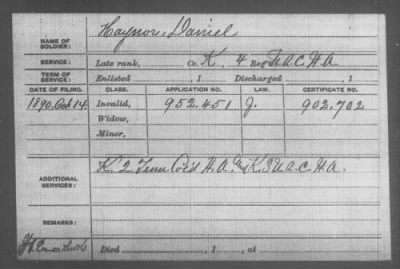 NAME OF SOLDIER: Haynor, Daniel
SERVICE: Late rank, Co. K, 4 Reg't U.S.C.H.A.
TERM OF SERVICE: Enlisted , 1 Discharged , 1
DATE OF FILING. CLASS. APPLICATION NO. LAW. CERTIFICATE NO.
1890. Oct 14. Invalid, 952.451 J. 902.702
Widow,
Minor,
ADDITIONAL SERVICES: K. 2 Tenn Col'd H.A. K. 3 U.S.C.H.A.
REMARKS:
Died , 1 , at